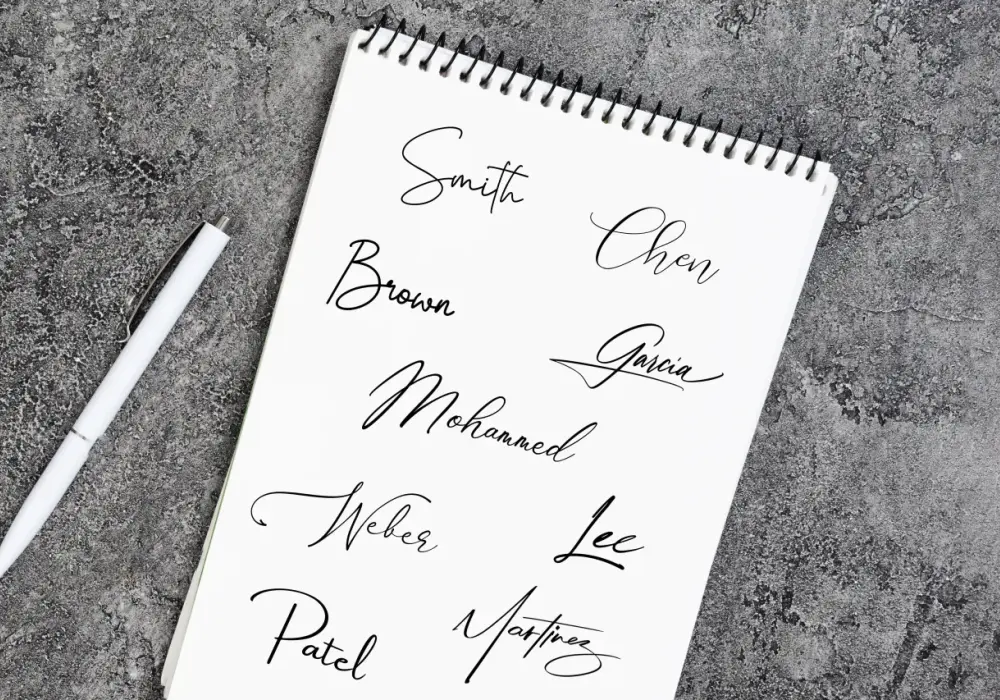 Smith
Chen
Brown
Garcia
Mohammed
Weber
Lee
Patel
Martinez